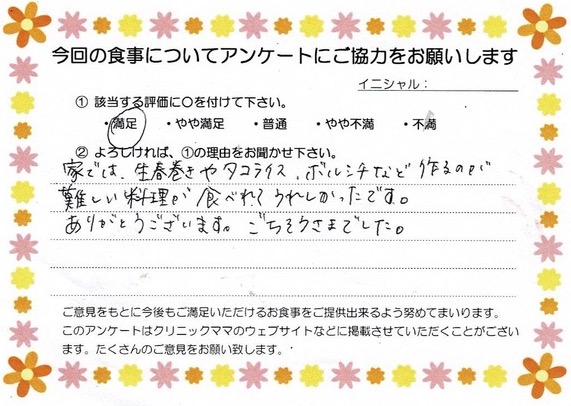 今回の食事についてアンケートにご協力をお願いします
イニシャル：
① 該当する評価に○を付けて下さい。
・満足 ・やや満足 ・普通 ・やや不満 ・不満
② よろしければ、①の理由をお聞かせ下さい。
家では、生春巻きやタコライス、ボルシチなど作るのが
難しい料理が食べれてうれしかったです。
ありがとうございます。ごちそうさまでした。
ご意見をもとに今後もご満足いただけるお食事をご提供出来るよう努めてまいります。
このアンケートはクリニックママのウェブサイトなどに掲載させていただくことがござい
ます。たくさんのご意見をお願い致します。